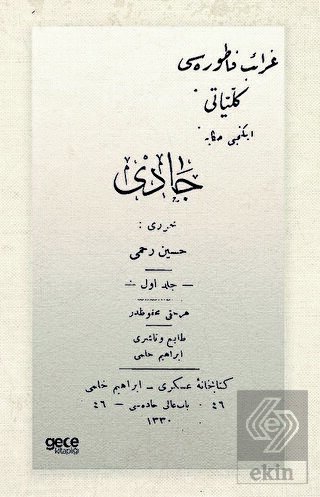 غرائب فاطوره‌سی
كلیاتی
ایكنجی حكایه
جادی
محرری :
حسین رحمی
— جلد اول —
هر حقی محفوظدر
طابع و ناشری
ابراهیم حلمی
كتابخانهٔ عسكری – ابراهیم حلمی
٤٦ باب عالی جاده‌سی – ٤٦
١٣٣٠
gece
kitaplığı
ekin